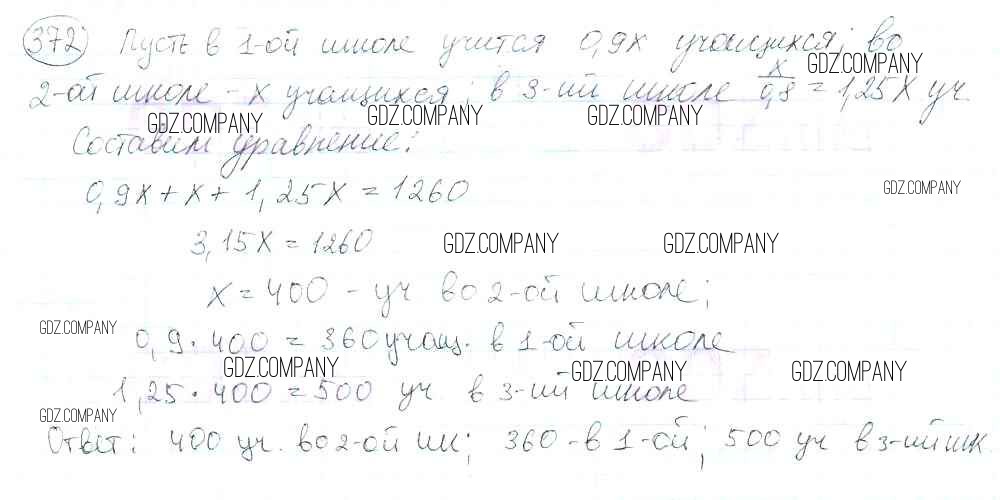 372 Пусть в 1-ой школе учится 0,9x учащихся; во
GDZ.COMPANY
2-ой школе - x учащихся; в 3-ий школе x/0,8 = 1,25x уч
GDZ.COMPANY GDZ.COMPANY GDZ.COMPANY
Составим уравнение:
0,9x + x + 1,25x = 1260
GDZ.COMPANY
3,15x = 1260
GDZ.COMPANY GDZ.COMPANY
x = 400 - уч во 2-ой школе;
GDZ.COMPANY
0,9 · 400 = 360 учащ. в 1-ой школе
GDZ.COMPANY GDZ.COMPANY GDZ.COMPANY
1,25 · 400 = 500 уч в 3-ий школе
GDZ.COMPANY
Ответ: 400 уч. во 2-ой шк; 360 - в 1-ой; 500 уч в 3-ий шк